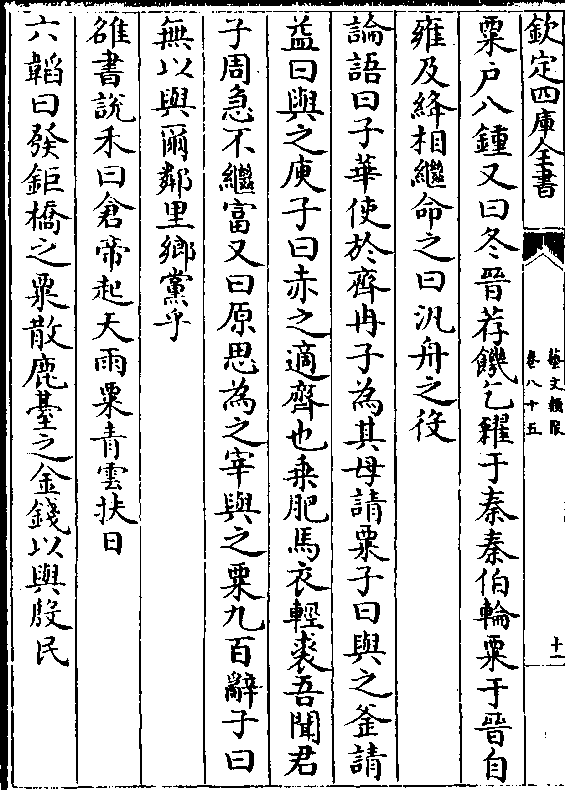 欽定四庫全書
藝文類聚
卷八十五
十一
粟户八鍾又曰冬晉荐饑乞糴于秦秦伯輸粟于晉自
雍及絳相繼命之曰汎舟之役
論語曰子華使於齊冉子為其母請粟子曰與之釜請
益曰與之庾子曰赤之適齊也乗肥馬衣輕裘吾聞君
子周急不繼富又曰原思為之宰與之粟九百辭子曰
無以與爾鄰里鄉黨乎
雒書說禾曰倉帝起天雨粟青雲扶日
六韜曰發鉅橋之粟散鹿臺之金錢以與殷民